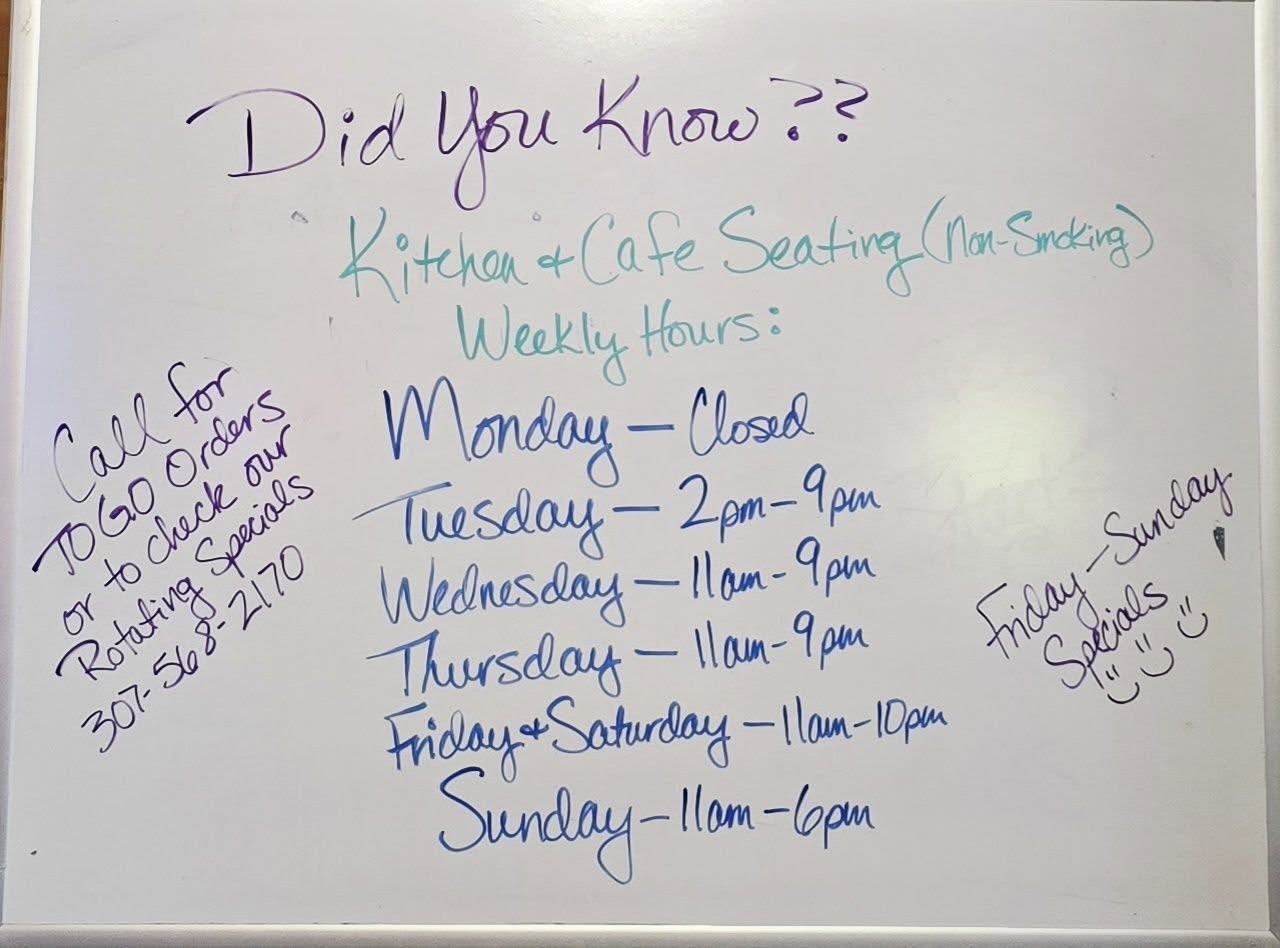 Did You Know??
Kitchen & Cafe Seating (Non-Smoking)
Weekly Hours:
Monday - Closed
Tuesday - 2pm - 9pm
Wednesday - 11am - 9pm
Thursday - 11am - 9pm
Friday & Saturday - 11am - 10pm
Sunday - 11am - 6pm
Call for
TO GO Orders
or to check our
Rotating Specials
307-568-2170
Friday - Sunday
Specials